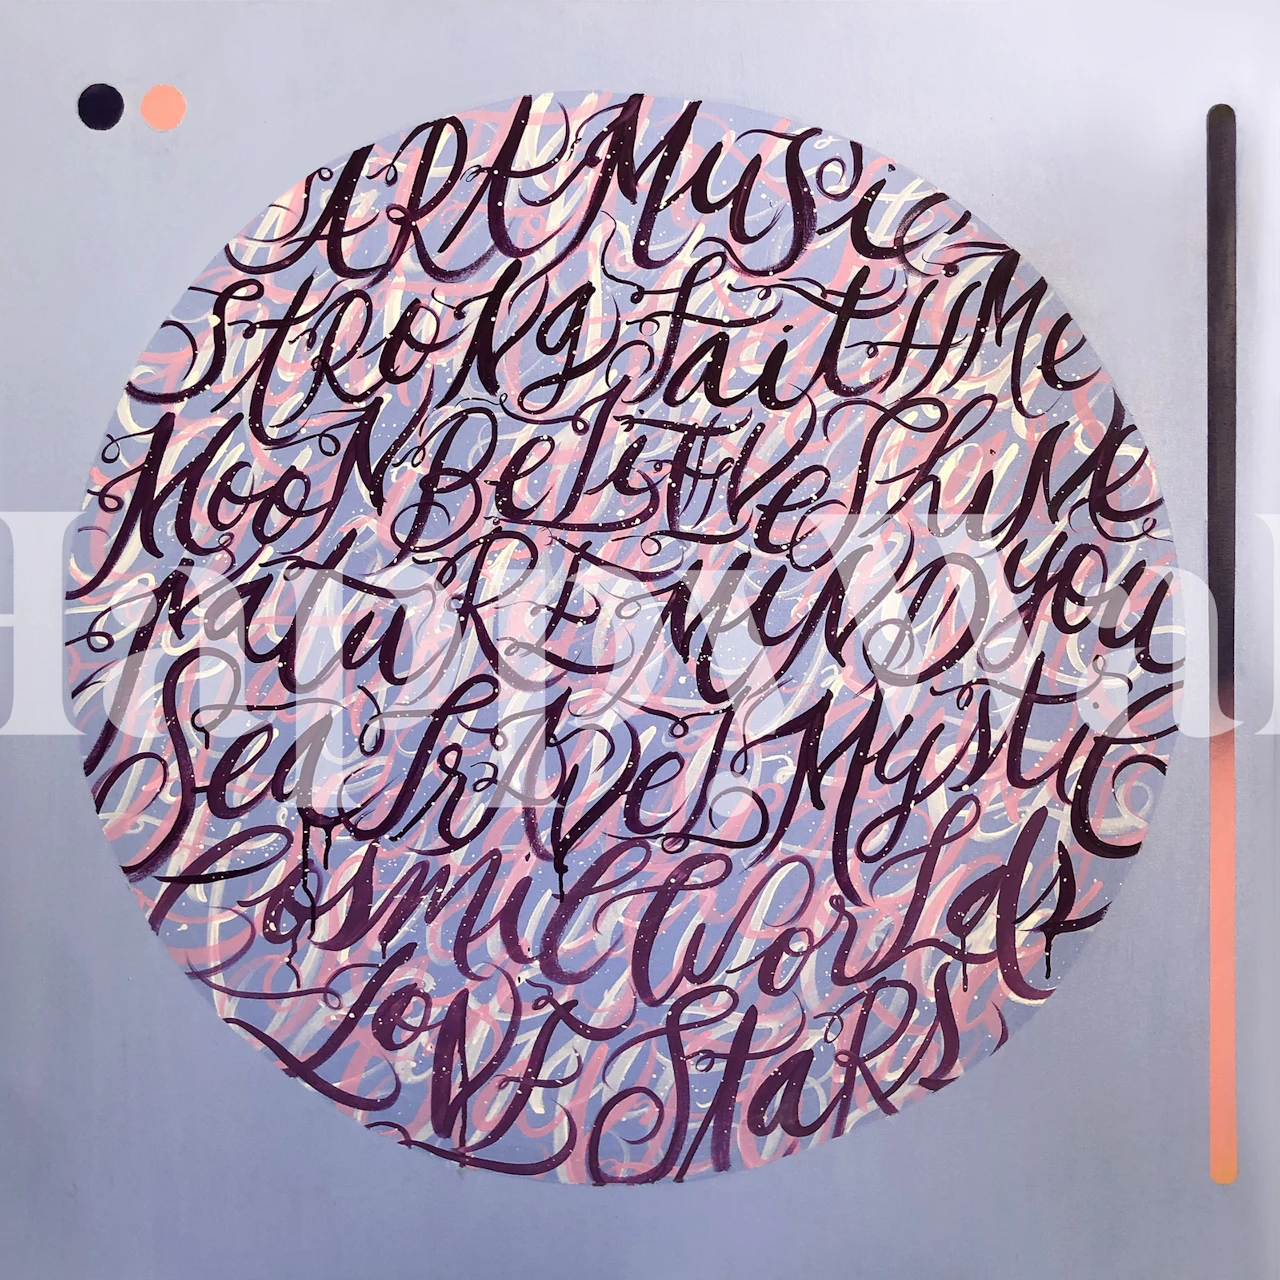 ART MUSiC
STRONg FaiTH Me
MOON BeLiEVe ShiNe
NaTuRE MiND you
Sea TrAVeL MysTiC
CosmiC WorLds
LOVE STaRS
HappyWall